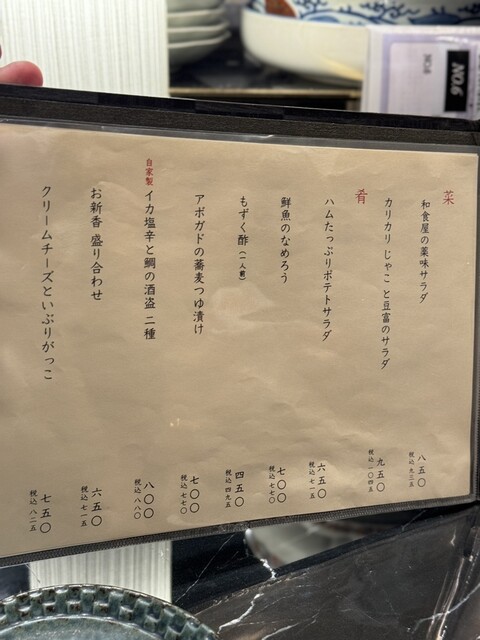 菜
和食屋の薬味サラダ
八五〇
税込 九三五
カリカリ じゃこ と豆富のサラダ
九五〇
税込 一〇四五
肴
ハムたっぷりポテトサラダ
六五〇
税込 七一五
鮮魚のなめろう
七〇〇
税込 七七〇
もずく酢(一人前)
四五〇
税込 四九五
アボガドの蕎麦つゆ漬け
七〇〇
税込 七七〇
自家製 イカ塩辛と鯛の酒盗 二種
八〇〇
税込 八八〇
お新香 盛り合わせ
六五〇
税込 七一五
クリームチーズといぶりがっこ
七五〇
税込 八二五
NO.6